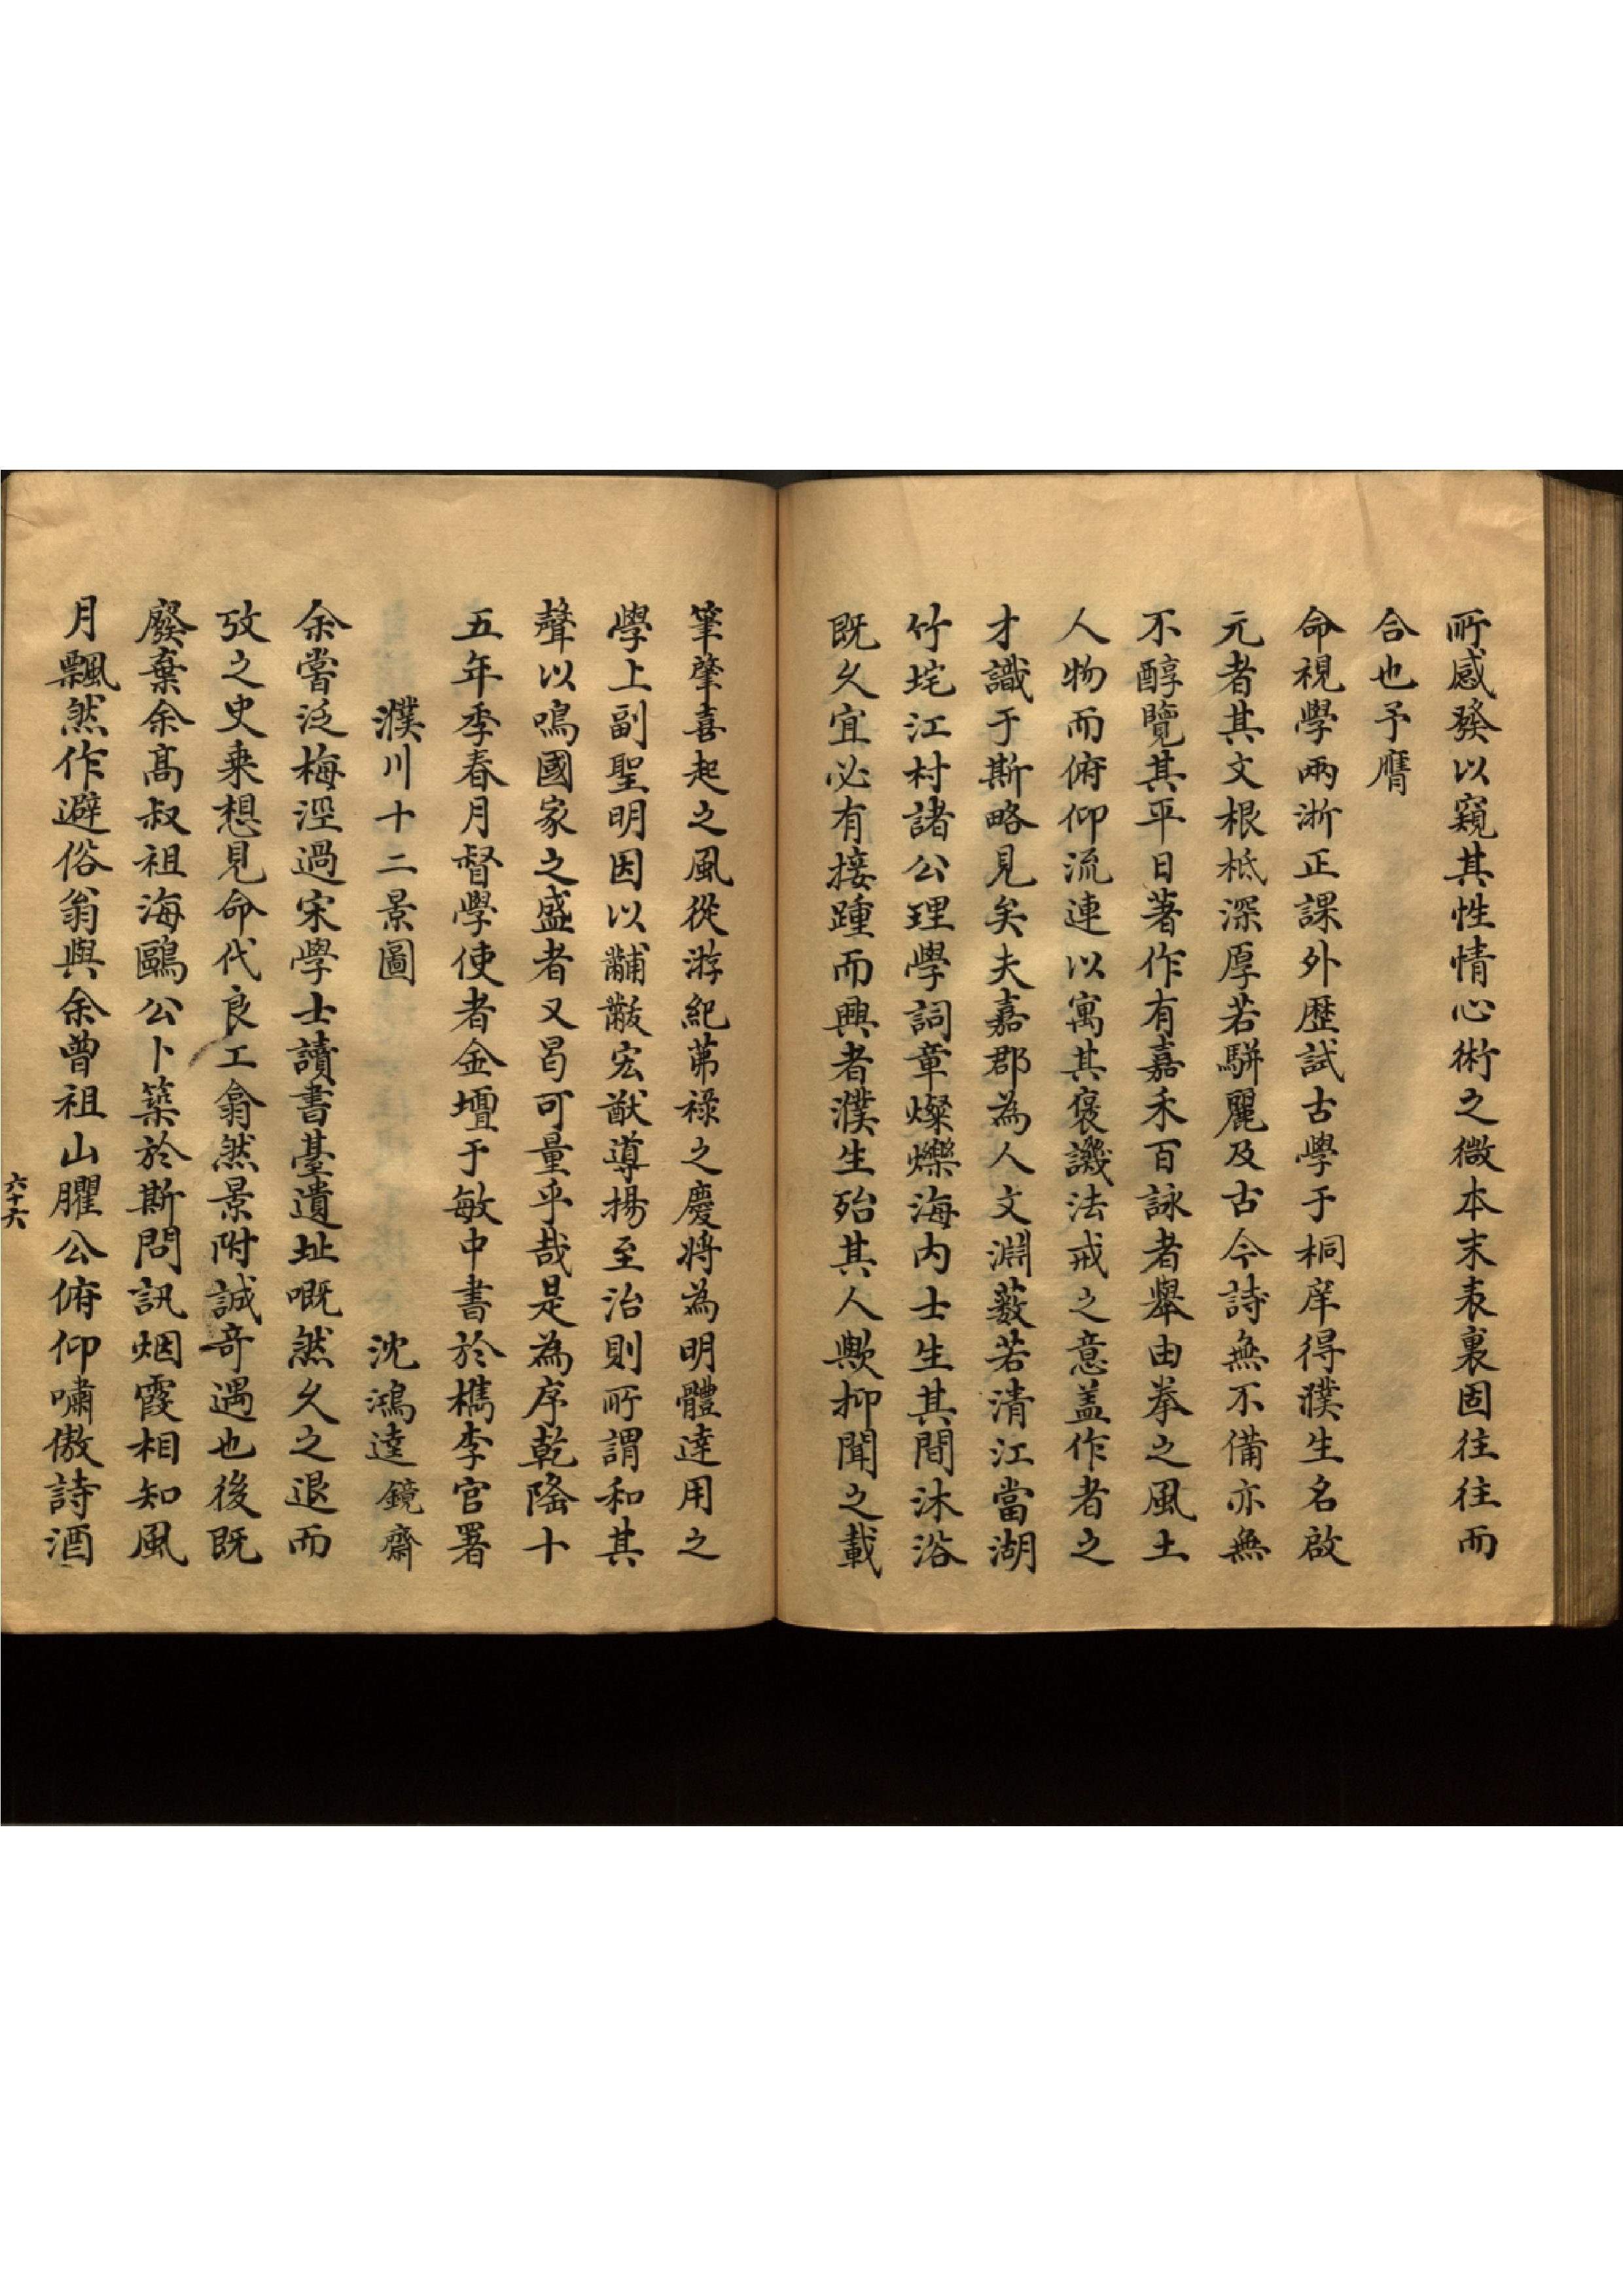 所感發以窺其性情心術之微本末表裏固往往而
合也予膺
命視學兩浙正課外歷試古學于桐庠得濮生名啟
元者其文根柢深厚若駢麗及古今詩無不備亦無
不醇覽其平日著作有嘉禾百詠者舉由拳之風土
人物而俯仰流連以寓其褒譏法戒之意盖作者之
才識于斯略見矣夫嘉郡為人文淵藪若清江當湖
竹垞江村諸公理學詞章燦爍海内士生其間沐浴
既久宜必有接踵而興者濮生殆其人歟抑聞之載
筆肇喜起之風從游紀茀祿之慶將為明體達用之
學上副聖明因以黼黻宏猷導揚至治則所謂和其
聲以鳴國家之盛者又曷可量乎哉是為序乾隆十
五年季春月督學使者金壇于敏中書於檇李官署
濮川十二景圖
沈鴻逵鏡齋
余嘗泛梅涇過宋學士讀書臺遺址嘅然久之退而
攷之史乗想見命代良工翕然景附誠奇遇也後既
廢棄余高叔祖海鷗公卜築於斯問訊烟霞相知風
月飄然作避俗翁與余曾祖山臞公俯仰嘯傲詩酒
六十六